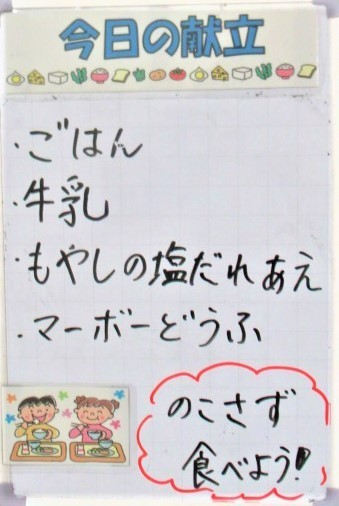 今日の献立
・ごはん
・牛乳
・もやしの塩だれあえ
・マーボーどうふ
のこさず
食べよう!